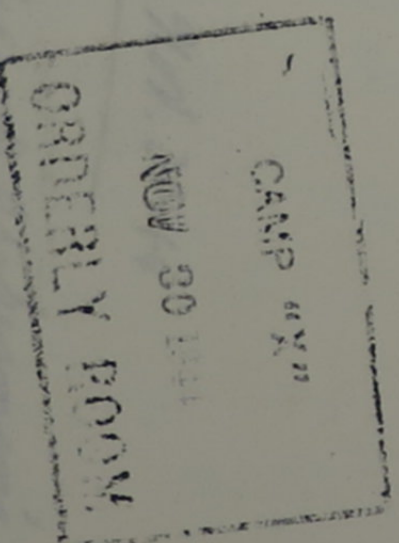 CAMP "X"
NOV 30
ORDERLY ROOM